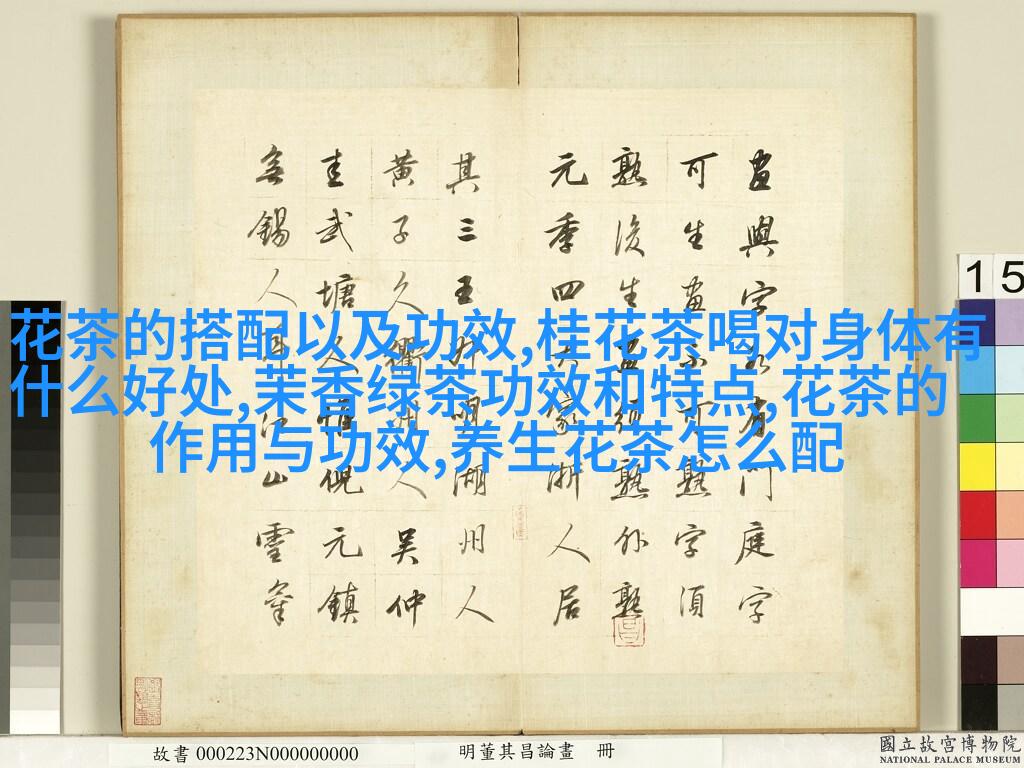 花茶的搭配以及功效,桂花茶喝对身体有
什么好处,茉香绿茶功效和特点,花茶的
作用与功效,养生花茶怎么配
畫與字各有門庭字
可生畫不可熟字須
熟後生畫須熟外熟
元季四大家浙人居
其三王叔明湖州人
黃子久衢州人吳仲
圭武塘人惟倪元鎮
無錫人耳江山靈氣
15
故書 000223N000000000
明董其昌論畫 冊
國立故宮博物院
NATIONAL PALACE MUSEUM